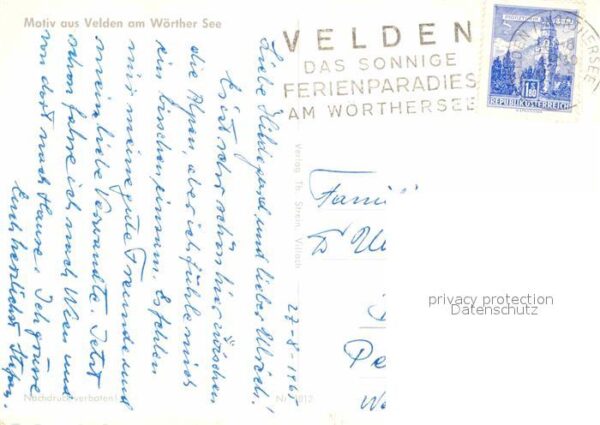 Motiv aus Velden am Wörther See
VELDEN
DAS SONNIGE
FERIENPARADIES
AM WÖRTHERSEE
REPUBLIK ÖSTERREICH
Liebe Hildegard, und lieber Ulrich!
Es ist sehr schön hier zwischen
die Alpen, aber ich fühle mich
ein bisschen einsam. Es fehlen
mir meine gute Freunde und
meine liebe Verwandte. Jetzt
schon fahre ich nach Wien und
von dort nach Hause. Ich grüsse
Euch herzlichst
27-8-196
Verlag Th. Strein, Villach
Famil
Dr
Pe
privacy protection
Datenschutz
Nachdruck verboten!